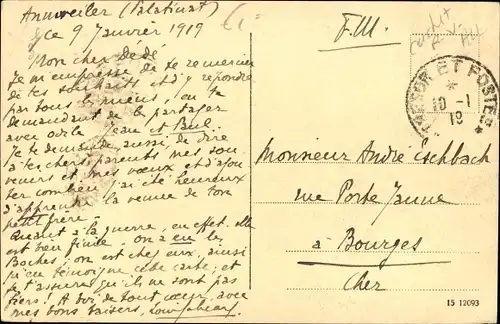 Annweiler (Palatinat)
Ce 9 Janvier 1919
Mon cher dédé
Je m'empresse de te remercier
de tes souhaits et d'y répondre
par tous les miens, en te
demandant de les partager
avec Odile Jean et Bul.
Je te demande aussi, de dire
à tes chers parents mes sou
venirs et mes voeux et d'ajou
ter combien j'ai été heureux
d'apprendre la venue de ton
petit frère.
Quant à la guerre, en effet, elle
est bien finie. On a eu les
Boches, on est chez eux, ainsi
qu'en témoigne cette carte; et
je t'assure qu'ils ne sont pas
fiers! A toi, de tout coeur, avec
mes bons baisers,
F.M.
TRESOR ET POSTES
10 -1
19
Monsieur André Eschbach
rue Porte Jaune
à Bourges
Cher
15 12093